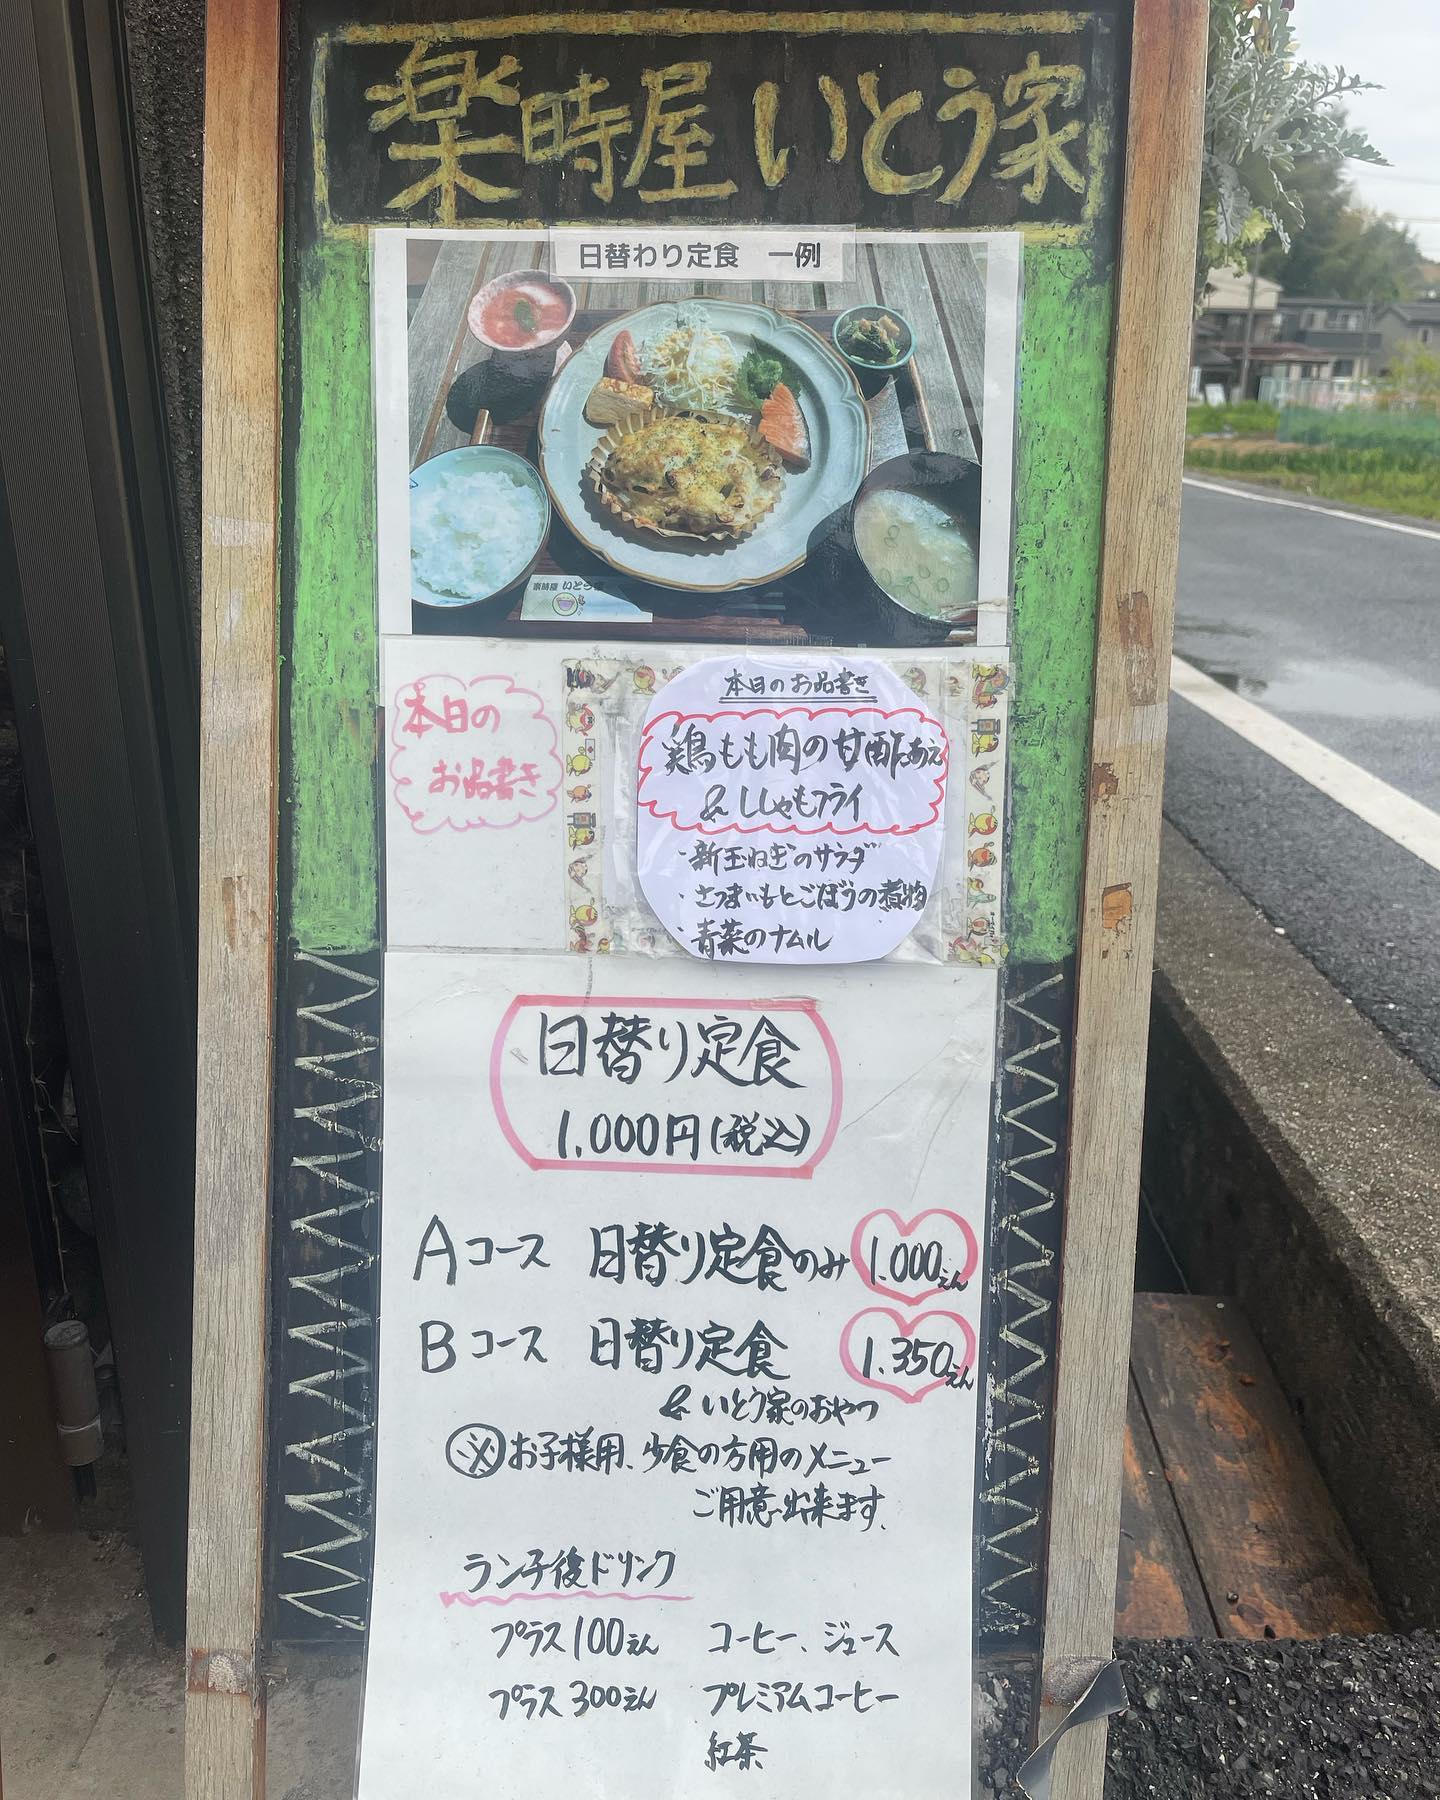 楽時屋 いとう家
日替わり定食 一例
楽時屋 いとう家
本日の
お品書き
本日のお品書き
鶏もも肉の甘酢あえ
& ししゃもフライ
・新玉ねぎのサラダ
・さつまいもとごぼうの煮物
・青菜のナムル
日替り定食
1.000円(税込)
Aコース 日替り定食のみ 1.000えん
Bコース 日替り定食 1.350えん
& いとう家のおやつ
※お子様用、少食の方用のメニュー
ご用意出来ます。
ランチ後ドリンク
プラス100えん コーヒー、ジュース
プラス300えん プレミアムコーヒー
紅茶